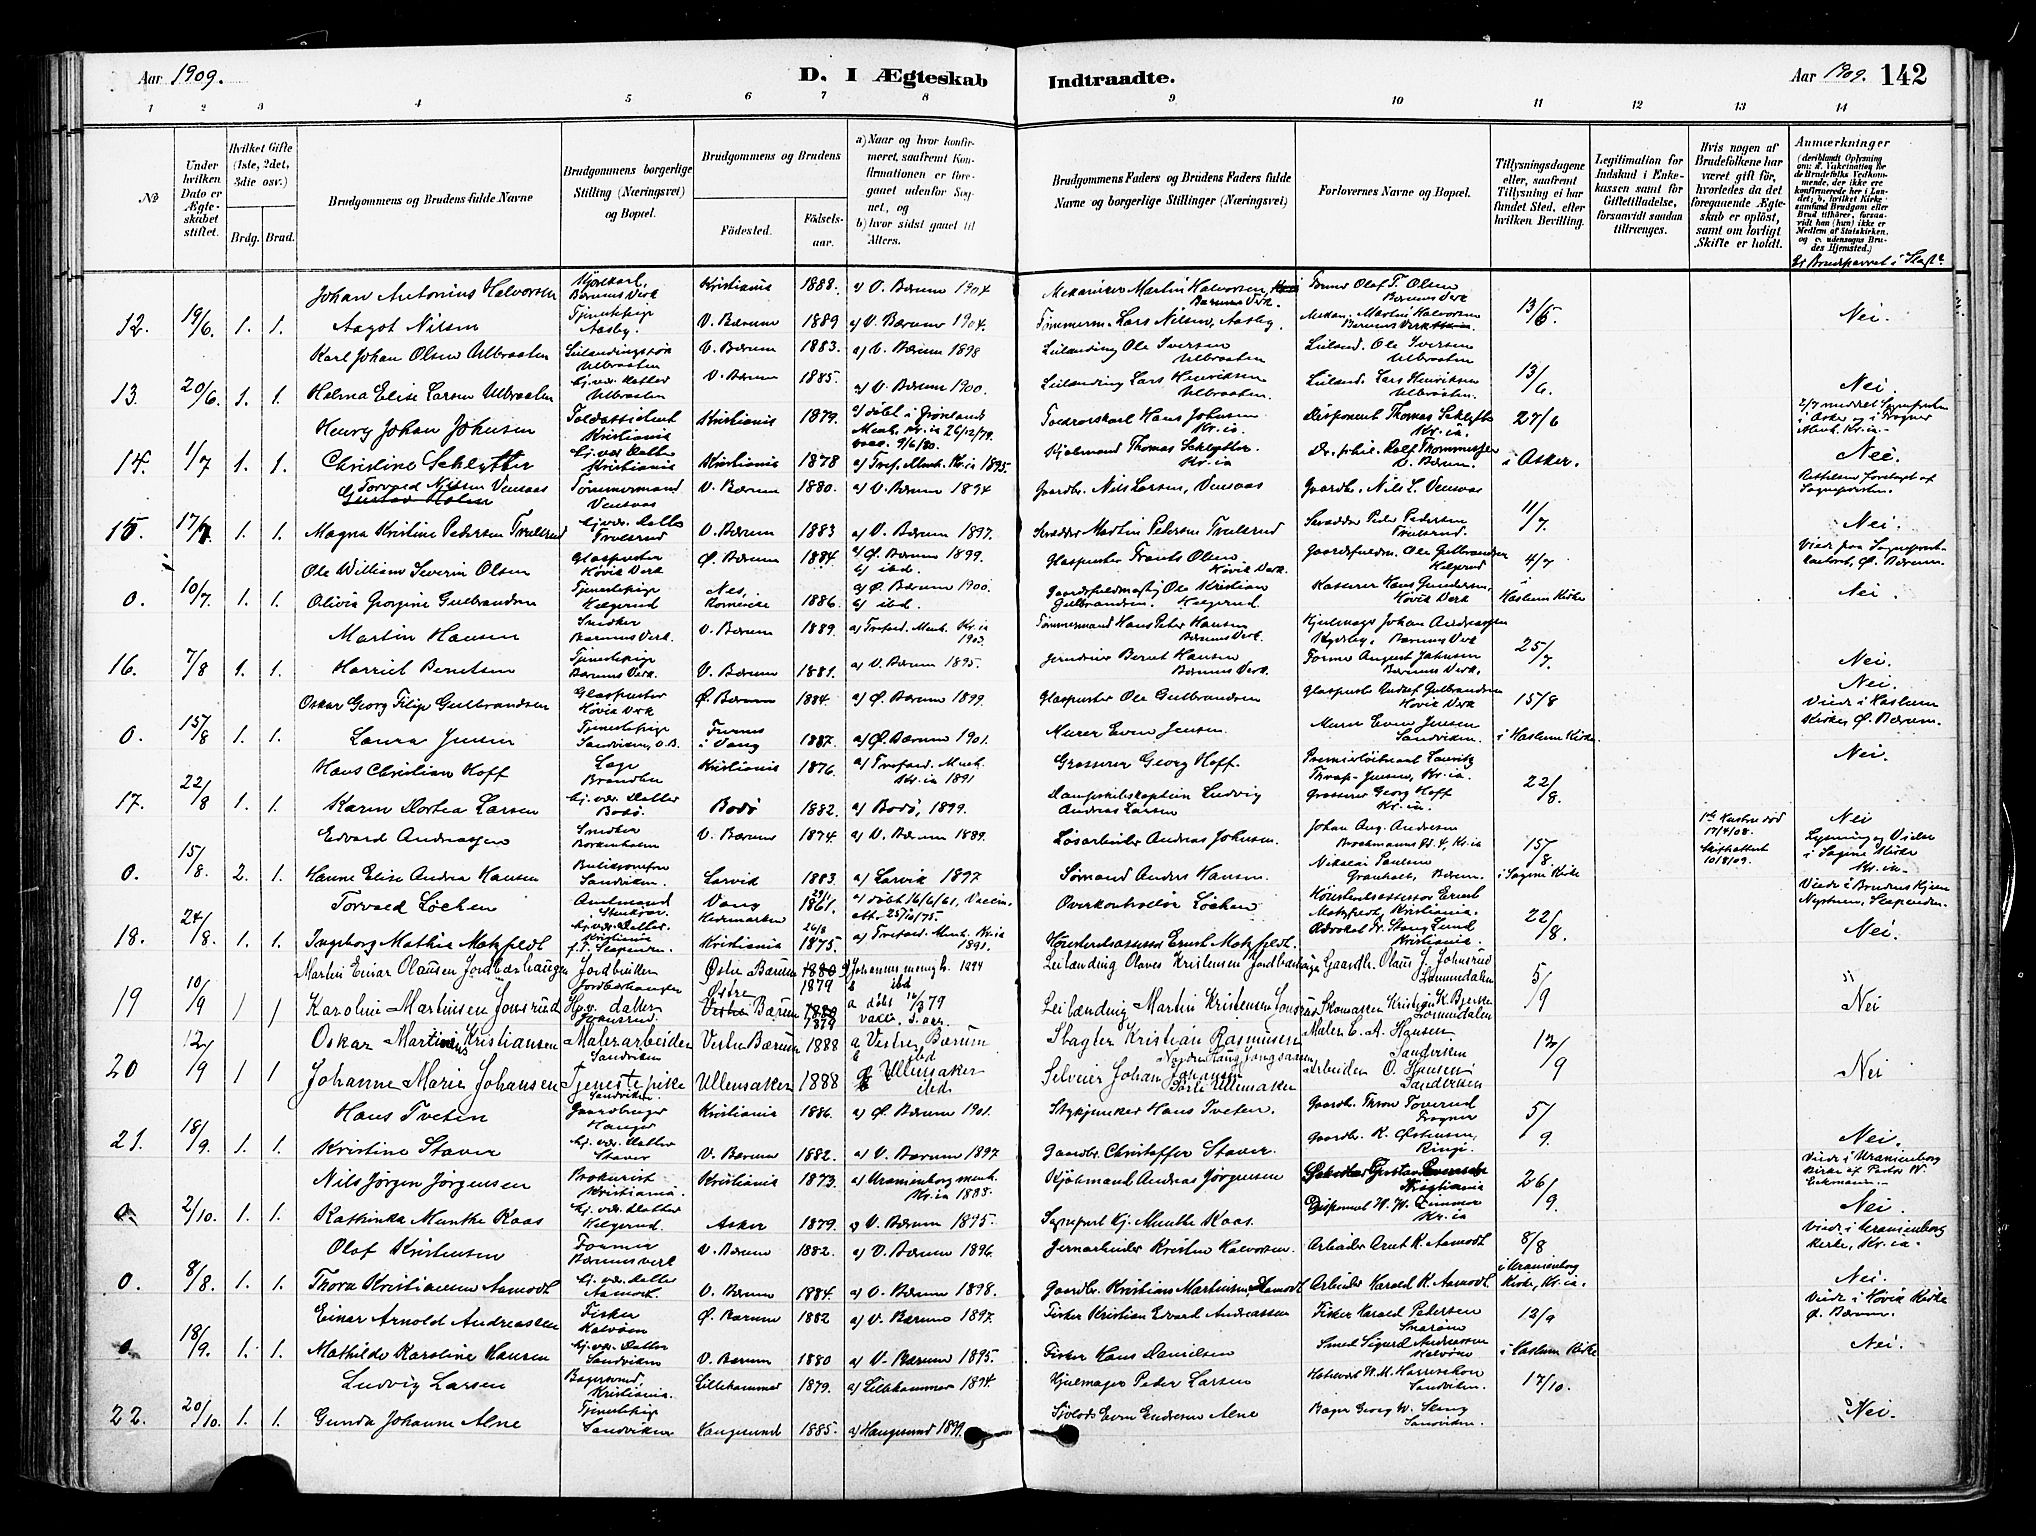 Aar 1909.
D. I Ægteskab
Indtraadte.
Aar 1909. 142
1 2 3 4 5 6 7 8 9 10 11 12 13 14
No
Under hvilken Dato er Ægteskabet stiftet.
Hvilket Gifte (1ste, 2det, 3die osv.)
Brdg. Brud.
Brudgommens og Brudens fulde Navne
Brudgommens borgerlige Stilling (Næringsvei) og Bopæl.
Brudgommens og Brudens
Fødested.
Fødselsaar.
a) Naar og hvor konfirmeret, saafremt Konfirmationen er foregaaet udenfor Sognet, og
b) hvor sidst gaaet til Alters.
Brudgommens Faders og Brudens Faders fulde Navne og borgerlige Stillinger (Næringsvei)
Forlovernes Navne og Bopæl.
Tillysningsdagene eller, saafremt Tillysning ei har fundet Sted, efter hvilken Bevilling.
Legitimation for Indskud i Enkekassen samt for Giftetilladelse, forsaavidt saadan tiltrænges.
Hvis nogen af Brudefolkene har været gift før, hvorledes da det foregaaende Ægteskab er opløst, samt om lovligt Skifte er holdt.
Anmærkninger
(deriblandt Oplysning om: a. Vakcination for Brudefolks Vedkommende, der ikke ere konfirmerede her i Landet; b. hvilket Kirkesamfund Brudgom eller Brud tilhører, forsaavidt han (hun) ikke er Medlem af Statskirken, og c. udensogns Brudes Hjemsted.)
Er Brudeparret i Slægt?
Johan Antonius Halvorsen Bærums Verk Kristiania 1888. a) V. Bærum 1904 Mekaniker Martin Halvorsen, Bærums Verk. Former Olaf T. Olsen Bærums Verk
12. 19/6 1. 1. Aagot Nilsen Tjenestepige Aasby. V. Bærum 1889 a) V. Bærum 1904. Tømmerm. Lars Nilsen, Aasby. Mekan. Martin Halvorsen Bærums Verk 13/6 Nei.
Karl Johan Olsen Ulbraaten Leilændingssøn Ulbraaten V. Bærum 1883. a) V. Bærum 1898 Leilænding Ole Iversen Ulbraaten Leilænd. Ole Iversen Ulbraaten
13. 20/6 1. 1. Helma Elise Larsen Ulbraaten Hj. vær. Datter Ulbraaten V. Bærum 1885. a) V. Bærum 1900. Leilænding Lars Henriksen Ulbraaten. Leilænd. Lars Henriksen Ulbraaten. 13/6. Nei.
Henry Johan Johnsen Toldassistent Kristiania Kristiania 1879. a) døbt i Grønland Menh. Kr.ia 26/12/79. vacc. 9/6/80. Hans Johnsen. Kr.ia. Disponent Thomas Schlytter Kr.ia. 27/6
14. 1/7 1. 1. Christine Schlytter Hj. vær. Datter Kristiania Kristiania 1878 a) Tref. Menh. Kr.ia 1895. Thomas Schlytter. Kr.ia Dr. phil. Rolf Thommessen V. Bærum. i Asker. Nei.
Torvald Nilsen Vensaas Tømmermand Vensaas V. Bærum 1880. a) V. Bærum 1894 Gaardbr. Nils Larsen, Vensaas Gaardbr. Nils L. Vensaas Rettelsen foretaget af Sognepresten.
15. 17/7. 1. 1. Magna Kristine Pedersen Trulsrud Hj. vær. Datter Trulsrud V. Bærum 1883 a) V. Bærum 1897. Skrædder Martin Pedersen Trulsrud Skrædder Peder Pedersen Trulsrud. 11/7. Nei.
Ole William Severin Olsen Glaspuster Høvik Verk Ø. Bærum 1884. a) Ø. Bærum 1899. b) ibd. Glaspuster Frants Olsen Høvik Verk. Ole Gulbrandsen Helgerud 4/7
0. 10/7. 1. 1. Olivia Georgine Gulbrandsen Tjenestepige Helgerud Nes, Romerike 1886. a) Ø. Bærum 1900. b) ibd. Ole Kristian Gulbrandsen. Helgerud Kasserer Hans Gundersen, Høvik Verk Haslum Kirke Nei.
Martin Hansen Snedker Bærums Verk. V. Bærum 1889. a) Trefold. Menh. Kr.ia 1903. Tømmermand Hans Peter Hansen Bærums Verk. Hjulmager Johan Andreassen Bærums Verk
16. 7/8 1. 1. Harriet Berntsen Tjenestepige Bærums Verk. V. Bærum 1881. a) V. Bærum 1895. Bernt Hansen Bærums Verk. Former August Johnsen Bærums Verk. 25/7. Nei.
Oskar Georg Filip Gulbrandsen Glaspuster Høvik Verk Ø. Bærum 1884. a) Ø. Bærum 1899 Glaspuster Ole Gulbrandsen Glaspuster Gulbrandsen Høvik Verk 15/8 Nei. Viede i Haslum Kirke, Ø. Bærum.
0. 15/8 1. 1. Laura Jensen Tjenestepige Sandviken, Ø.B. Furnes i Vang 1887. a) Ø. Bærum 1901. Murer Even Jensen. Murer Even Jensen Sandviken. i Haslum Kirke.
Hans Christian Hoff Læge Kristiania 1876. a) Trefold. Menh. Kr.ia 1891 Grosserer Georg Hoff. Premierløitnant Lauritz Thrap-Jensen, Kr.ia. Nei.
17. 22/8 1. 1. Karen Dortea Larsen Hj. vær. Datter Bodø. Bodø 1882. a) Bodø, 1899. Dampskibskaptein Ludvig Andreas Larsen Grosserer Georg Hoff Kr.ia. 22/8.
Edvard Andreassen Snedker Borkenholm V. Bærum 1874. a) V. Bærum 1889. Løsarbeider Andreas Johnsen. Johan Aug. Andresen Kr.ia 15/8 1ste Hustru død 17/4/08. Skifteattest 10/8/09. Nei Lysning og Vielse i Sagene Kirke Kr.ia.
0. 15/8. 2. 1. Hanne Elise Andrea Hansen Sandviken. Larvik 1883. a) Larvik 1897 Sømand Anders Hansen. Nikolai Paulsen Bærum. i Sagene Kirke
Torvald Løchen Amtmand Vang Hedemarken 1861. a) døbt 16/6/61, Vaccin. att. 25/10/75. Overkontrollør Løchen Høiesteretsassessor Ernst Motzfeldt, Kristiania.
18. 24/8. 1. 1. Ingeborg Mathia Motzfeldt Hj. vær. Datter Kristiania Kristiania 1875. a) Trefold. Menh. Kr.ia 1891. Høiesteretsassessor Ernst Motzfeldt. Advokat Fr. Stang Lund Kristiania. 22/8. Nei.
Martin Einar Olausen Jordbærhaugen Jordbruker Jordbærhaugen Østre Bærum 1880 1879 a Johannes menigh. 1894 b ibd Leilænding Olaves Kristensen Jordbærhaugen Gaardbr. Olaus J. Johnsrud Lommedalen 5/9
19 10/9 1 1 Karoline Martinsen Jonsrud Hj.v. datter Jonsrud Østre Bærum 1880 1879 a døbt Leilænding Martin Kristensen Jonsrud Skomaker Kristian K. Bjerke Lommedalen Nei
Oskar Martinius Kristiansen Malerarbeider Sandviken Vestre Bærum 1888 a Vestre Bærum b ibd Slagter Kristian Rasmussen Maler C. A. Hansen Sandviken 12/9
20 12/9 1 1 Johanne Marie Johansen Tjenestepike Sandviken. Ullensaker 1888 a Ullensaker b ibd. Selveier Johan Johansen Ullensaker Arbeider O. Hansen Sandviken Nei
Hans Tveten Gaardbruger Hanger Kristiania 1886. a) Ø. Bærum 1901. Stykjunker Hans Tveten. Gaardbr. Thron Toverud 5/9.
21. 18/9. 1. 1. Kristine Staver Hj. vær. Datter Staver V. Bærum 1882. a) V. Bærum 1897 Gaardbr. Christoffer Staver. Gaardbr. K. Østensen, Ringi. Nei.
Nils Jørgen Jørgensen Prokurist Kristiania. Kristiania 1873. a) Uranienborg menh. Kr.ia 1888. Kjøbmand Andreas Jørgensen Kristiania 26/9. Viede i Uranienborg Kirke af Pastor W.
0 2/10. 1. 1. Kathinka Munthe Kaas Hj. vær. Datter Helgerud. Asker 1879. a) V. Bærum 1895. Sogneprest Hj. Munthe Kaas. Disponent W. W. Zimmer Kr.ia Nei.
Olaf Kristensen Former Bærumsverk V. Bærum 1882. a) V. Bærum 1896. Jernarbeider Kristen Halvorsen. Arbeider Arnt K. Aamodt 8/8 Viede i Uranienborg Kirke, Kr.ia.
0. 8/8. 1. 1. Thora Kristiansen Aamodt Hj. vær. Datter Aamodt V. Bærum 1884. a) V. Bærum 1898. Gaardbr. Kristians Martinsen Aamodt Arbeider Harald K. Aamodt. i Uranienborg Kirke, Kr.ia. Nei.
Einar Arnold Andreassen Fisker Kalvøen Ø. Bærum 1882 a) V. Bærum 1897. Fisker Kristian Edvard Andreassen Fisker Harald Pedersen Snarøen 12/9 Viede i Høvik Kirke Ø. Bærum.
0 18/9. 1. 1. Mathilde Karoline Hansen Hj. vær. Datter Sandviken V. Bærum 1880 a) V. Bærum 1895. Fisker Hans Danielsen Smed Sigurd Andreassen Kalvøen i Haslum Kirke Nei.
Ludvig Larsen Bagersvend Kristiania. Lillehammer 1879. a) Lillehammer 1894. Hjulmager Peder Larsen Sandviken. 17/10.
22. 20/10. 1. 1. Gunda Johanne Alne Tjenestepige Sandviken Haugesund 1885. a) Haugesund 1899. Even Endresen Alne Bager Georg W. Sandviken. Nei.